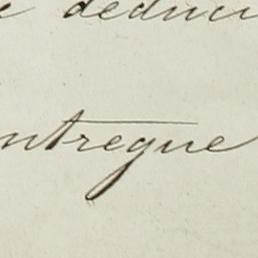 e deduci
ntregue